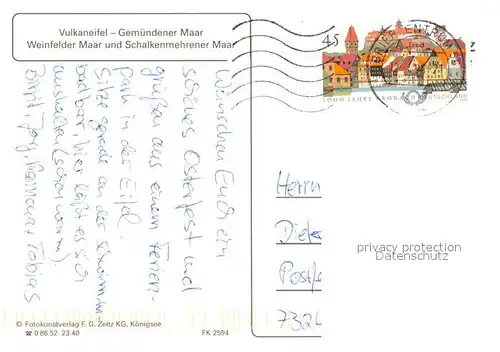 Vulkaneifel – Gemündener Maar
Weinfelder Maar und Schalkenmehrener Maar
Wünschen Euch ein
schönes Osterfest und
grüßen aus einem Ferien-
Park in der Eifel.
Sitze gerade an der
und hier läßt es sich
aushalten (schön warm).
Tobias
45
1000 JAHRE KRONACH DEUTSCHLAND
Herrn
Dieter
Postf
7324
privacy protection
Datenschutz
© Fotokunstverlag F. G. Zeitz KG, Königsee
☎ 0 86 52-23.40
FK 2594